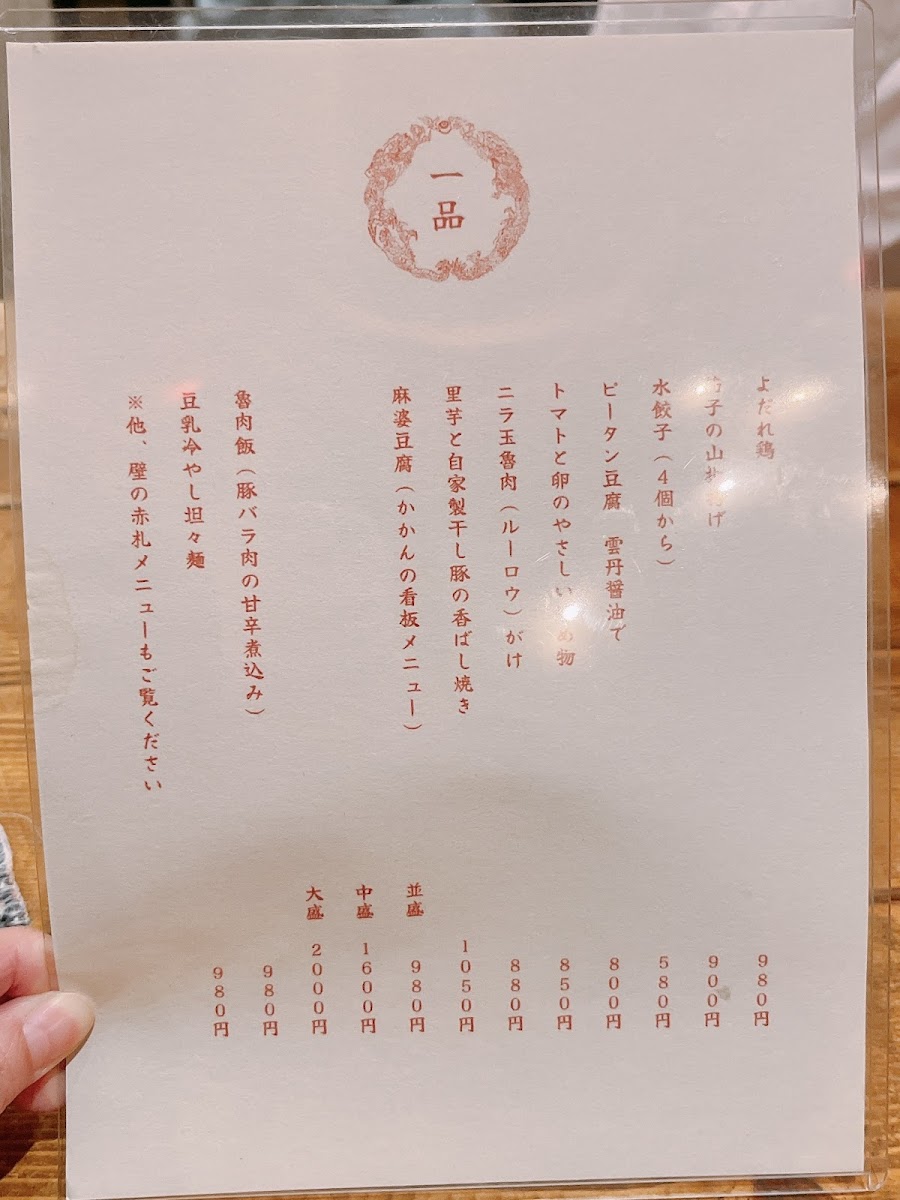 一品
よだれ鶏 980円
子の山 げ 900円
水餃子（4個から） 580円
ピータン豆腐 雲丹醤油で 800円
トマトと卵のやさしい め物 850円
ニラ玉魯肉（ルーロウ）がけ 880円
里芋と自家製干し豚の香ばし焼き 1050円
麻婆豆腐（かかんの看板メニュー） 並盛 980円
中盛 1600円
大盛 2000円
魯肉飯（豚バラ肉の甘辛煮込み） 980円
豆乳冷やし坦々麺 980円
※他、壁の赤札メニューもご覧ください